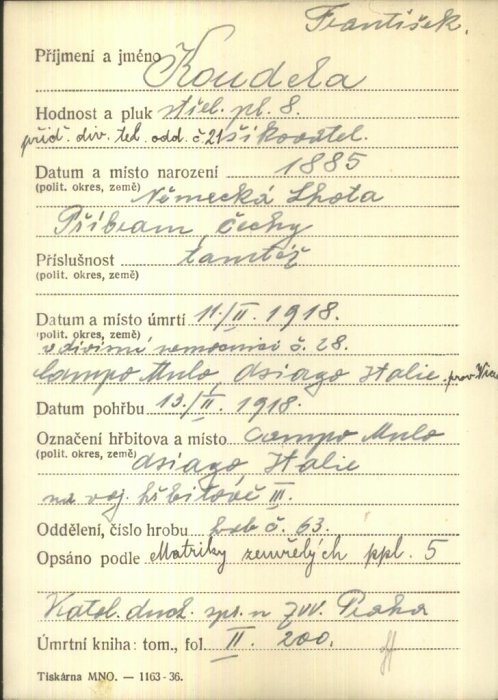 František.
Příjmení a jméno Koudela
Hodnost a pluk střel. pl. 8.
přid. div. tel. odd. č. 21 šikovatel.
Datum a místo narození 1885
(polit. okres, země) Německá Lhota
Příbram, Čechy
Příslušnost tamtéž
(polit. okres, země)
Datum a místo úmrtí 11./II. 1918.
(polit. okres, země)
v divisní nemocnici č. 28.
Campo Mulo, Asiago Italie prov.
Datum pohřbu 13./II. 1918.
Označení hřbitova a místo Campo Mulo
(polit. okres, země) Asiago, Italie
na voj. hřbitově III.
Oddělení, číslo hrobu hrob č. 63.
Opsáno podle Matriky zemřelých ppl. 5
Katol. duch. spr. n ZVV. Praha
Úmrtní kniha: tom., fol. II. 200.
Tiskárna MNO. — 1163-36.